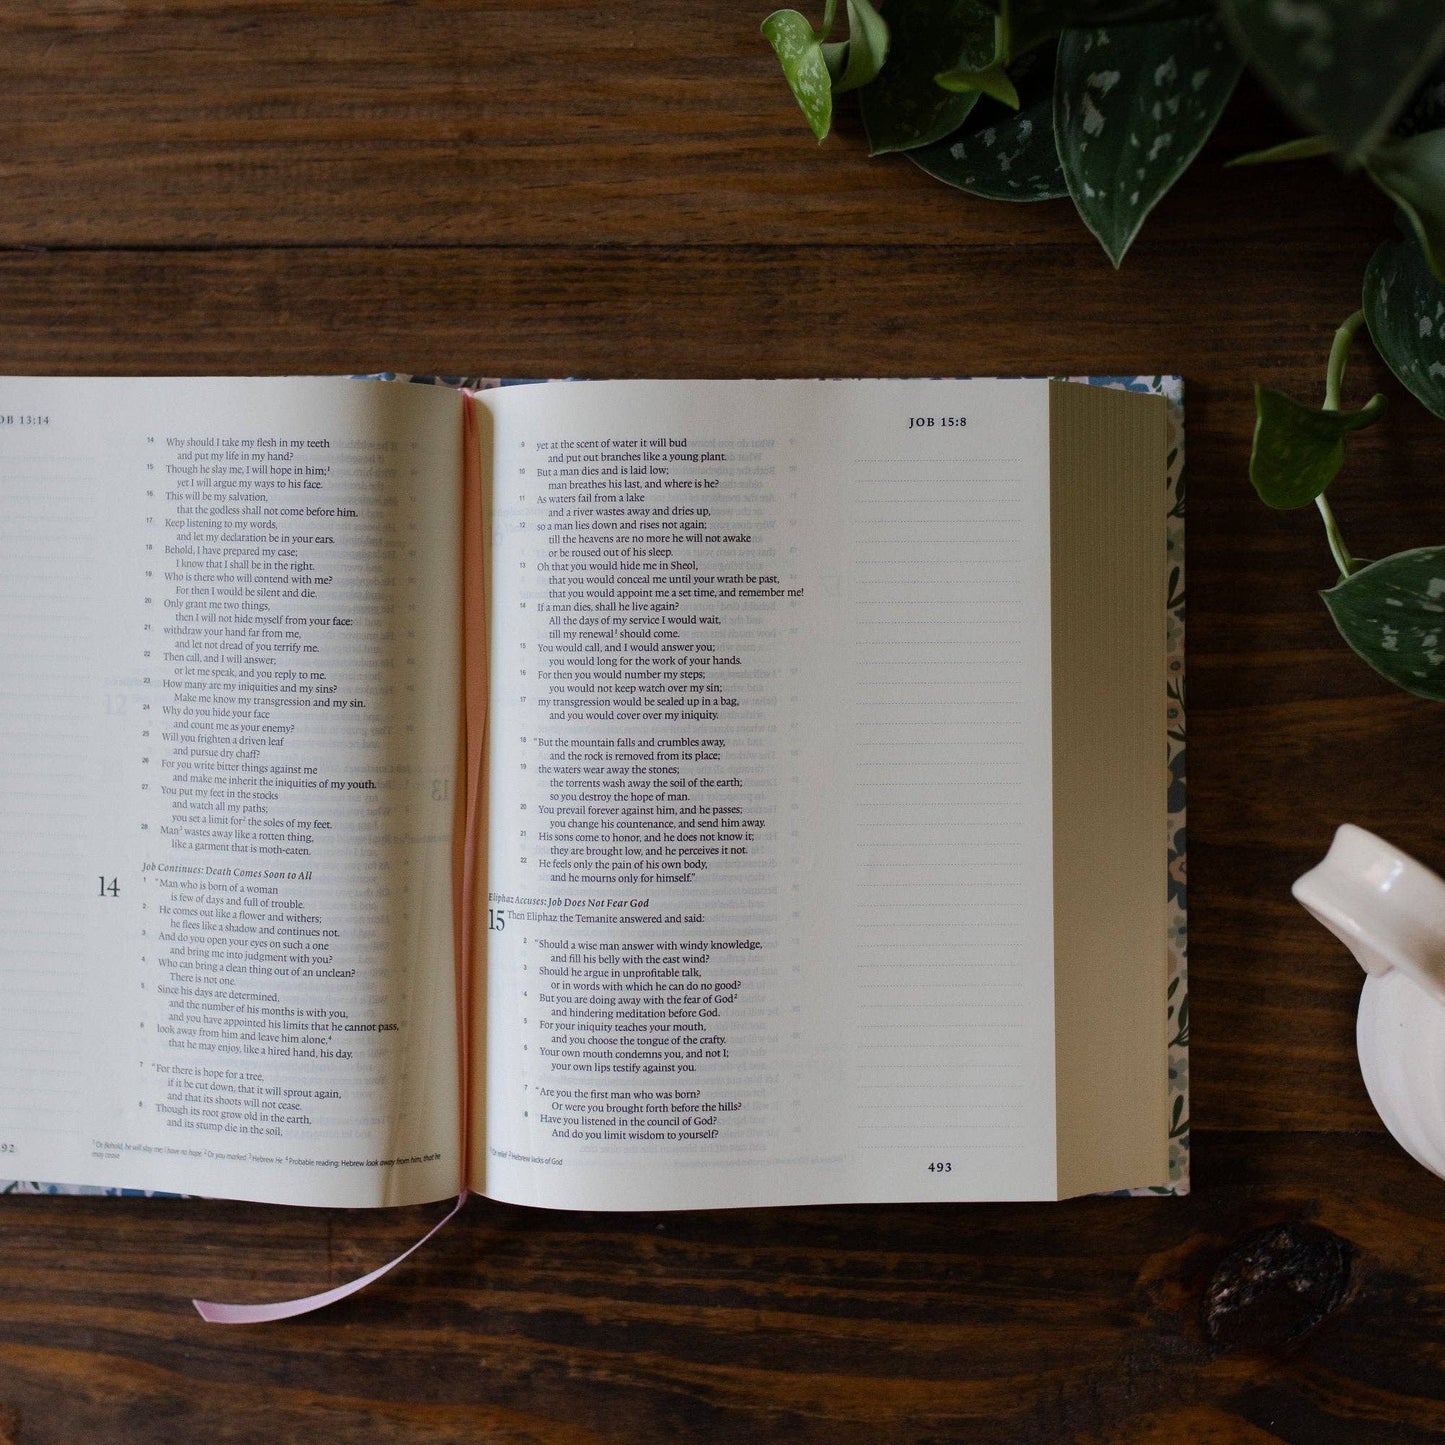 OB 13:14
14 Why should I take my flesh in my teeth
and put my life in my hand?
15 Though he slay me, I will hope in him;1
yet I will argue my ways to his face.
16 This will be my salvation,
that the godless shall not come before him.
17 Keep listening to my words,
and let my declaration be in your ears.
18 Behold, I have prepared my case;
I know that I shall be in the right.
19 Who is there who will contend with me?
For then I would be silent and die.
20 Only grant me two things,
then I will not hide myself from your face:
21 withdraw your hand far from me,
and let not dread of you terrify me.
22 Then call, and I will answer;
or let me speak, and you reply to me.
23 How many are my iniquities and my sins?
Make me know my transgression and my sin.
24 Why do you hide your face
and count me as your enemy?
25 Will you frighten a driven leaf
and pursue dry chaff?
26 For you write bitter things against me
and make me inherit the iniquities of my youth.
27 You put my feet in the stocks
and watch all my paths;
you set a limit for2 the soles of my feet.
28 Man3 wastes away like a rotten thing,
like a garment that is moth-eaten.
Job Continues: Death Comes Soon to All
14 1 “Man who is born of a woman
is few of days and full of trouble.
2 He comes out like a flower and withers;
he flees like a shadow and continues not.
3 And do you open your eyes on such a one
and bring me into judgment with you?
4 Who can bring a clean thing out of an unclean?
There is not one.
5 Since his days are determined,
and the number of his months is with you,
and you have appointed his limits that he cannot pass,
6 look away from him and leave him alone,4
that he may enjoy, like a hired hand, his day.
7 “For there is hope for a tree,
if it be cut down, that it will sprout again,
and that its shoots will not cease.
8 Though its root grow old in the earth,
and its stump die in the soil,
1 Or Behold, he will slay me; I have no hope 2 Or you marked 3 Hebrew He 4 Probable reading; Hebrew look away from him, that he
may cease
92
JOB 15:8
9 yet at the scent of water it will bud
and put out branches like a young plant.
10 But a man dies and is laid low;
man breathes his last, and where is he?
11 As waters fail from a lake
and a river wastes away and dries up,
12 so a man lies down and rises not again;
till the heavens are no more he will not awake
or be roused out of his sleep.
13 Oh that you would hide me in Sheol,
that you would conceal me until your wrath be past,
that you would appoint me a set time, and remember me!
14 If a man dies, shall he live again?
All the days of my service I would wait,
till my renewal1 should come.
15 You would call, and I would answer you;
you would long for the work of your hands.
16 For then you would number my steps;
you would not keep watch over my sin;
17 my transgression would be sealed up in a bag,
and you would cover over my iniquity.
18 “But the mountain falls and crumbles away,
and the rock is removed from its place;
19 the waters wear away the stones;
the torrents wash away the soil of the earth;
so you destroy the hope of man.
20 You prevail forever against him, and he passes;
you change his countenance, and send him away.
21 His sons come to honor, and he does not know it;
they are brought low, and he perceives it not.
22 He feels only the pain of his own body,
and he mourns only for himself.”
Eliphaz Accuses: Job Does Not Fear God
15 Then Eliphaz the Temanite answered and said:
2 “Should a wise man answer with windy knowledge,
and fill his belly with the east wind?
3 Should he argue in unprofitable talk,
or in words with which he can do no good?
4 But you are doing away with the fear of God2
and hindering meditation before God.
5 For your iniquity teaches your mouth,
and you choose the tongue of the crafty.
6 Your own mouth condemns you, and not I;
your own lips testify against you.
7 “Are you the first man who was born?
Or were you brought forth before the hills?
8 Have you listened in the council of God?
And do you limit wisdom to yourself?
Or relief 2 Hebrew lacks of God
493